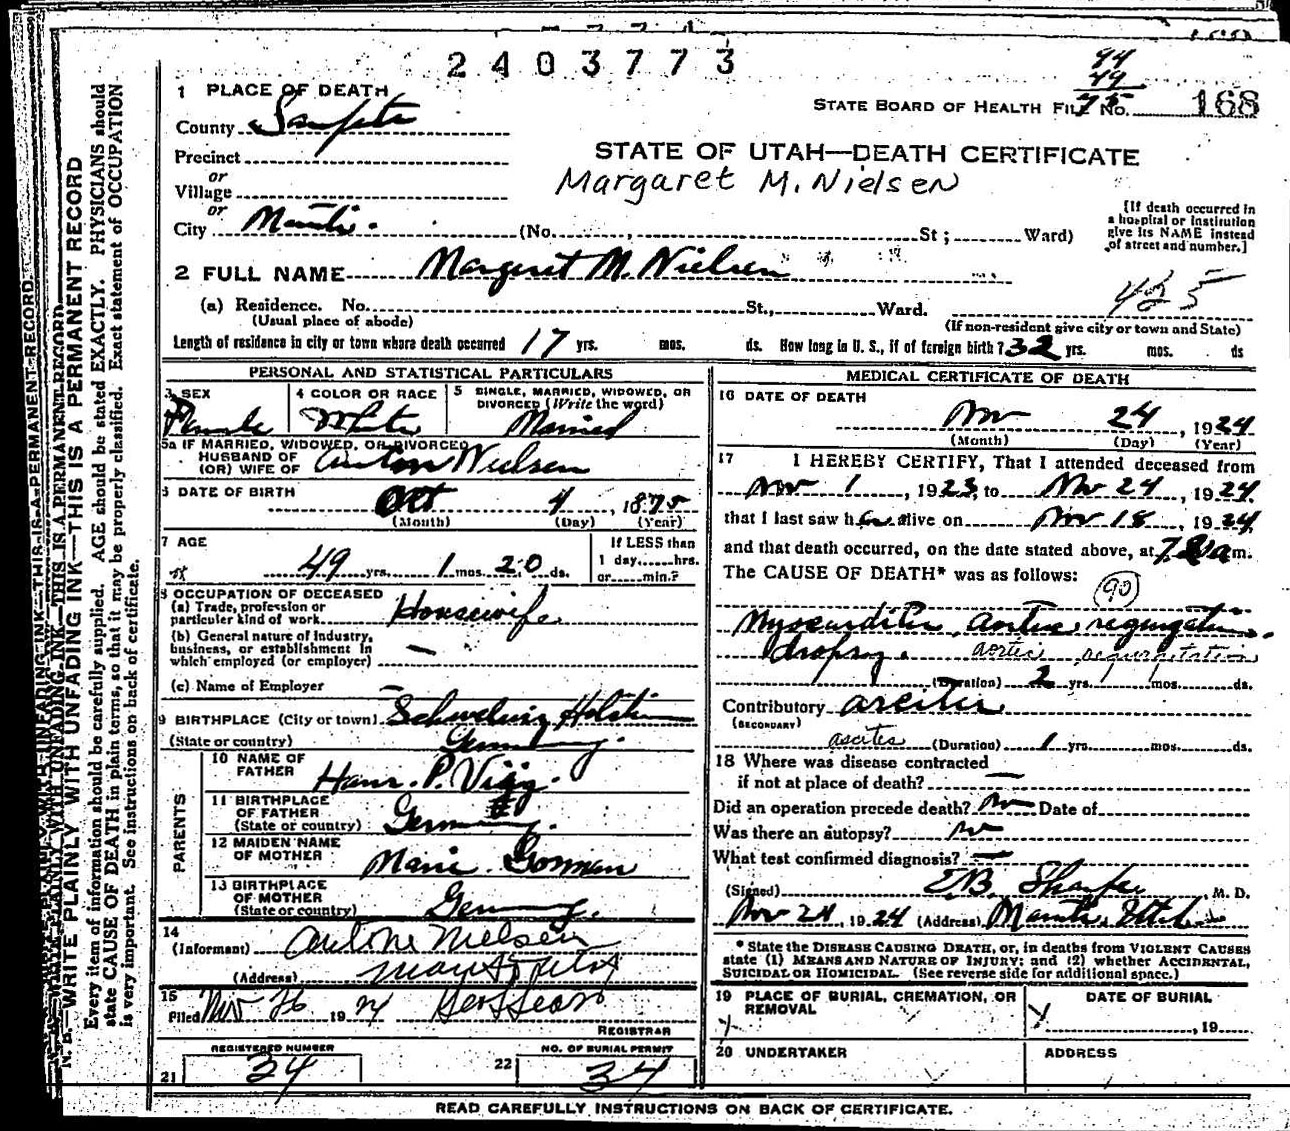 2403773
94
49
75
STATE BOARD OF HEALTH FILE No. 168
1 PLACE OF DEATH
County Sanpete
Precinct
or
Village
or
City Manti.
STATE OF UTAH—DEATH CERTIFICATE
Margaret M. Nielsen
(No. St; Ward)
[If death occurred in
a hospital or institution
give its NAME instead
of street and number.]
2 FULL NAME Margaret M. Nielsen
425
(a) Residence. No. St., Ward.
(Usual place of abode)
(If non-resident give city or town and State)
Length of residence in city or town where death occurred 17 yrs. mos. ds. How long in U. S., if of foreign birth? 32 yrs. mos. ds
PERSONAL AND STATISTICAL PARTICULARS
3 SEX
Female
4 COLOR OR RACE
White
5 SINGLE, MARRIED, WIDOWED, OR
DIVORCED (Write the word)
Married
5a IF MARRIED, WIDOWED, OR DIVORCED
HUSBAND OF
(OR) WIFE OF Anton Nielsen
6 DATE OF BIRTH
Oct 4, 1875
(Month) (Day) (Year)
7 AGE
49 yrs. 1 mos. 20 ds.
If LESS than
1 day......hrs.
or......min.?
8 OCCUPATION OF DECEASED
(a) Trade, profession or
particular kind of work Housewife
(b) General nature of industry,
business, or establishment in
which employed (or employer) —
(c) Name of Employer —
9 BIRTHPLACE (City or town) Schwelwig Holstein
(State or country) Germany.
PARENTS
10 NAME OF
FATHER Hans. P. Vigg.
11 BIRTHPLACE
OF FATHER
(State or country) Germany.
12 MAIDEN NAME
OF MOTHER Marie Gorman
13 BIRTHPLACE
OF MOTHER
(State or country) Germany.
14
(Informant) Antone Nielsen
(Address) Manti Utah
15
Filed Nov 26 1924
REGISTRAR
REGISTERED NUMBER
21 34
NO. OF BURIAL PERMIT
22 34
MEDICAL CERTIFICATE OF DEATH
16 DATE OF DEATH
Nov 24, 1924
(Month) (Day) (Year)
17 I HEREBY CERTIFY, That I attended deceased from
Nov 1, 1923, to Nov 24, 1924
that I last saw her alive on Nov 18, 1924
and that death occurred, on the date stated above, at 7 a m.
The CAUSE OF DEATH* was as follows:
90
Myocarditis, Aortic regurgitation.
dropsy. aortic regurgitation
(Duration) 2 yrs. mos. ds.
Contributory ascites
(SECONDARY)
ascites (Duration) 1 yrs. mos. ds.
18 Where was disease contracted
if not at place of death? —
Did an operation precede death? No Date of
Was there an autopsy? No
What test confirmed diagnosis? —
(Signed) , M. D.
Nov 24, 1924 (Address) Manti, Utah
* State the DISEASE CAUSING DEATH, or, in deaths from VIOLENT CAUSES
state (1) MEANS AND NATURE OF INJURY; and (2) whether ACCIDENTAL,
SUICIDAL OR HOMICIDAL. (See reverse side for additional space.)
19 PLACE OF BURIAL, CREMATION, OR
REMOVAL
DATE OF BURIAL
, 19
20 UNDERTAKER
ADDRESS
READ CAREFULLY INSTRUCTIONS ON BACK OF CERTIFICATE.
N. B.—WRITE PLAINLY WITH UNFADING INK—THIS IS A PERMANENT RECORD
Every item of information should be carefully supplied. AGE should be stated EXACTLY. PHYSICIANS should
state CAUSE OF DEATH in plain terms, so that it may be properly classified. Exact statement of OCCUPATION
is very important. See instructions on back of certificate.